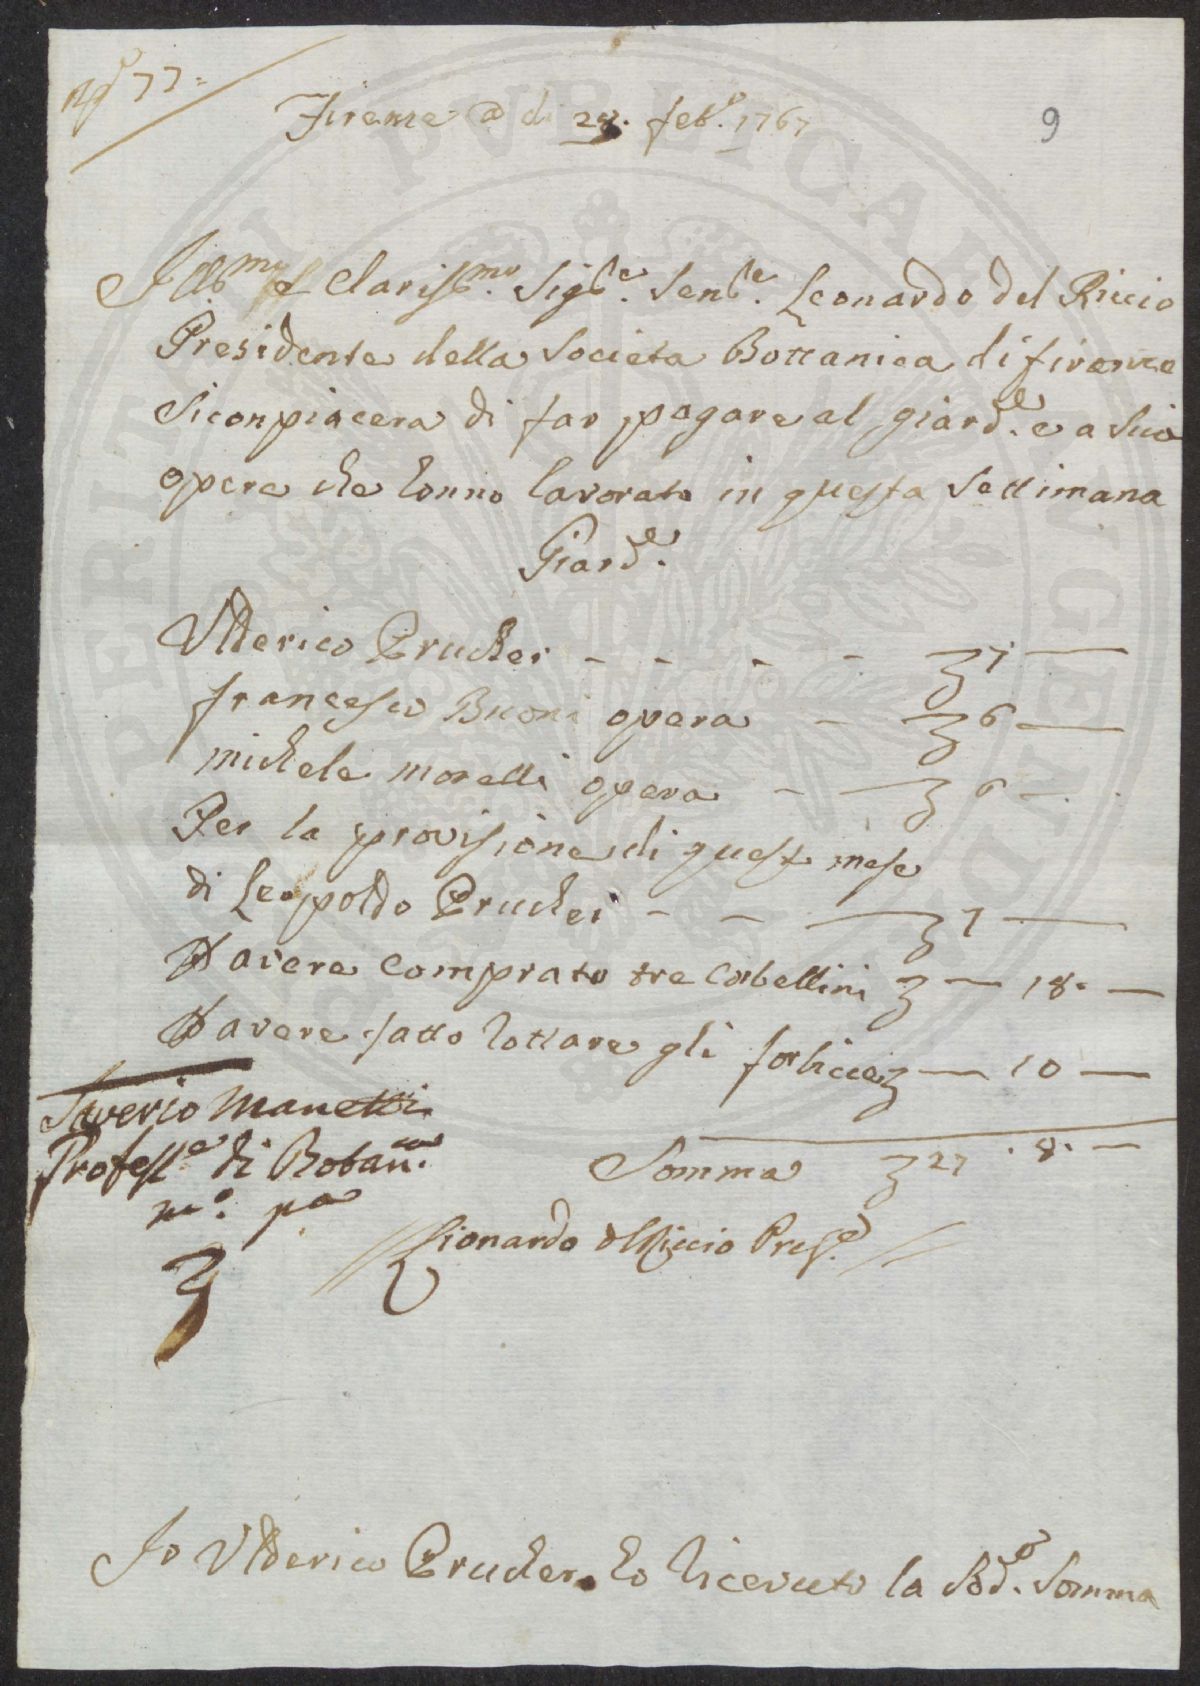 77:
Firenze @ di 28. feb.o 1767
9
Illmo e Clarissmo. Sigre. Senre. Leonardo del Riccio
Presidente della Societa Bottanica di firenze
Siconpiacera di far pagare al giarde. e a Suo
opere che honno lavorato in questa Settimana
Giarde.
Ulderico Prucher - - - - 7 —
francesco Buoni opera - 6 —
michele morelli opera - 6 -
Per la provisione di questo mese
di Leopoldo Prucher - - 7 —
Havere comprato tre Corbellini — 18. —
Havere fatto Rottare gli forbicce — 10 —
Saverio Manetti
Professe di Botanca.
mo. pa
Somma 27 . 8. —
Lionardo del Riccio Prese.
Io Ulderico Prucher ho Riceuto la Sode. Somma